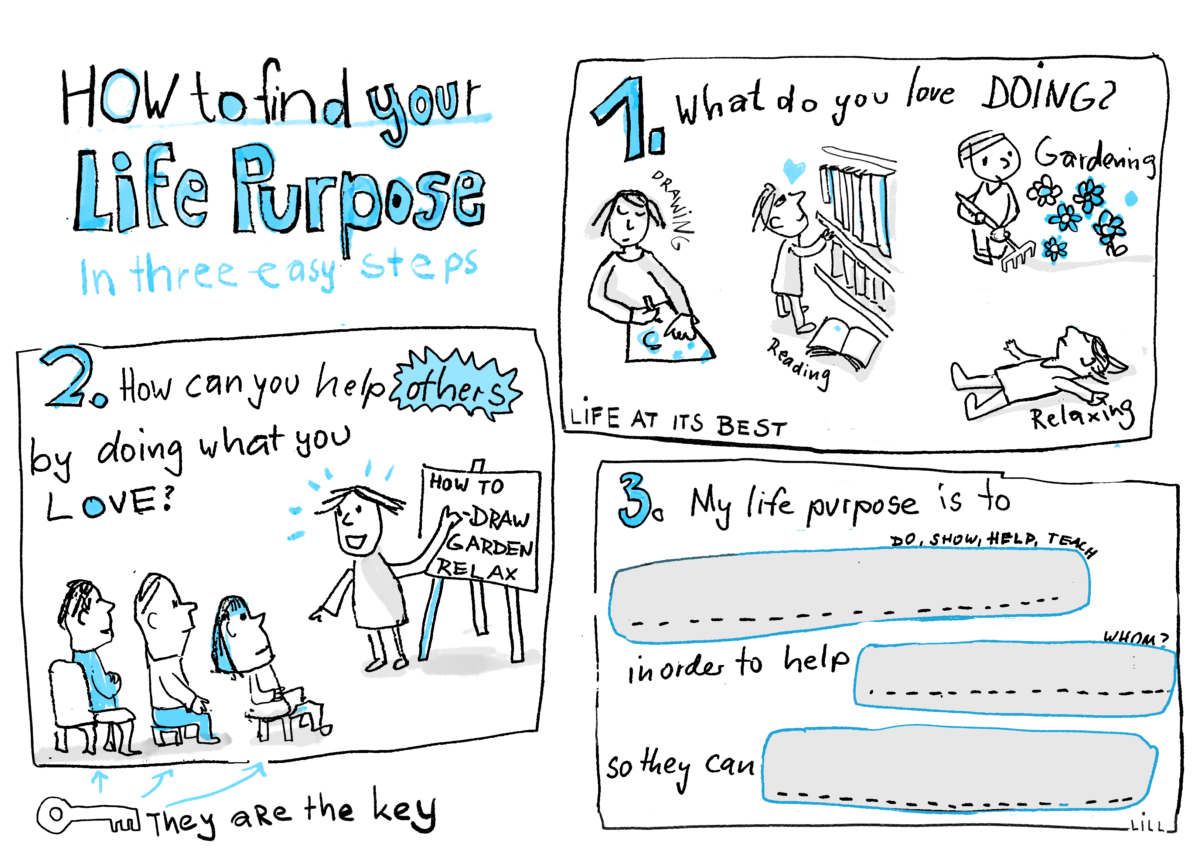 HOW to find your
Life Purpose
In three easy steps
1. What do you love DOING?
DRAWING
Reading
Gardening
Relaxing
LIFE AT ITS BEST
2. How can you help others
by doing what you
LOVE?
HOW TO
-DRAW
GARDEN
RELAX
They are the key
3. My life purpose is to
DO, SHOW, HELP, TEACH
in order to help
WHOM?
so they can
LILL